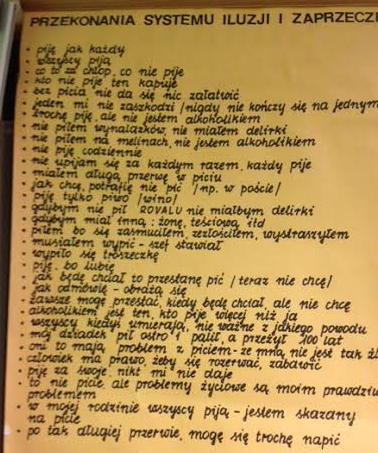 PRZEKONANIA SYSTEMU ILUZJI I ZAPRZECZ
· piję jak każdy
· wszyscy piją
· co to za chłop, co nie pije
· kto nie pije ten kapuje
· bez picia nie da się nic załatwić
· jeden mi nie zaszkodzi /nigdy nie kończy się na jednym
· trochę piję, ale nie jestem alkoholikiem
· nie piłem wynalazków, nie miałem delirki
· nie piłem na melinach, nie jestem alkoholikiem
· nie piję codziennie
· nie upijam się za każdym razem, każdy pije
· miałem długą przerwę w piciu
· jak chcę, potrafię nie pić /np. w poście/
· piję tylko piwo /wino/
· gdybym nie pił ROYALU nie miałbym delirki
· gdybym miał inną: żonę, teściową itd
· piłem bo się zasmuciłem, zezłościłem, wystraszyłem
· musiałem wypić - szef stawiał
· wypiło się troszeczkę
· piję, bo lubię
· jak będę chciał to przestanę pić /teraz nie chcę/
· jak odmówię - obrażą się
· zawsze mogę przestać, kiedy będę chciał, ale nie chcę
· alkoholikiem jest ten, kto pije więcej niż ja
· wszyscy kiedyś umierają, nie ważne z jakiego powodu
· mój dziadek pił ostro i palił, a przeżył 100 lat
· oni to mają problem z piciem - ze mną nie jest tak źl
· człowiek ma prawo żeby się rozerwać, zabawić
· piję za swoje, nikt mi nie daje
· to nie picie, ale problemy życiowe są moim prawdziw
problemem
· w mojej rodzinie wszyscy piją - jestem skazany
na picie
· po tak długiej przerwie, mogę się trochę napić